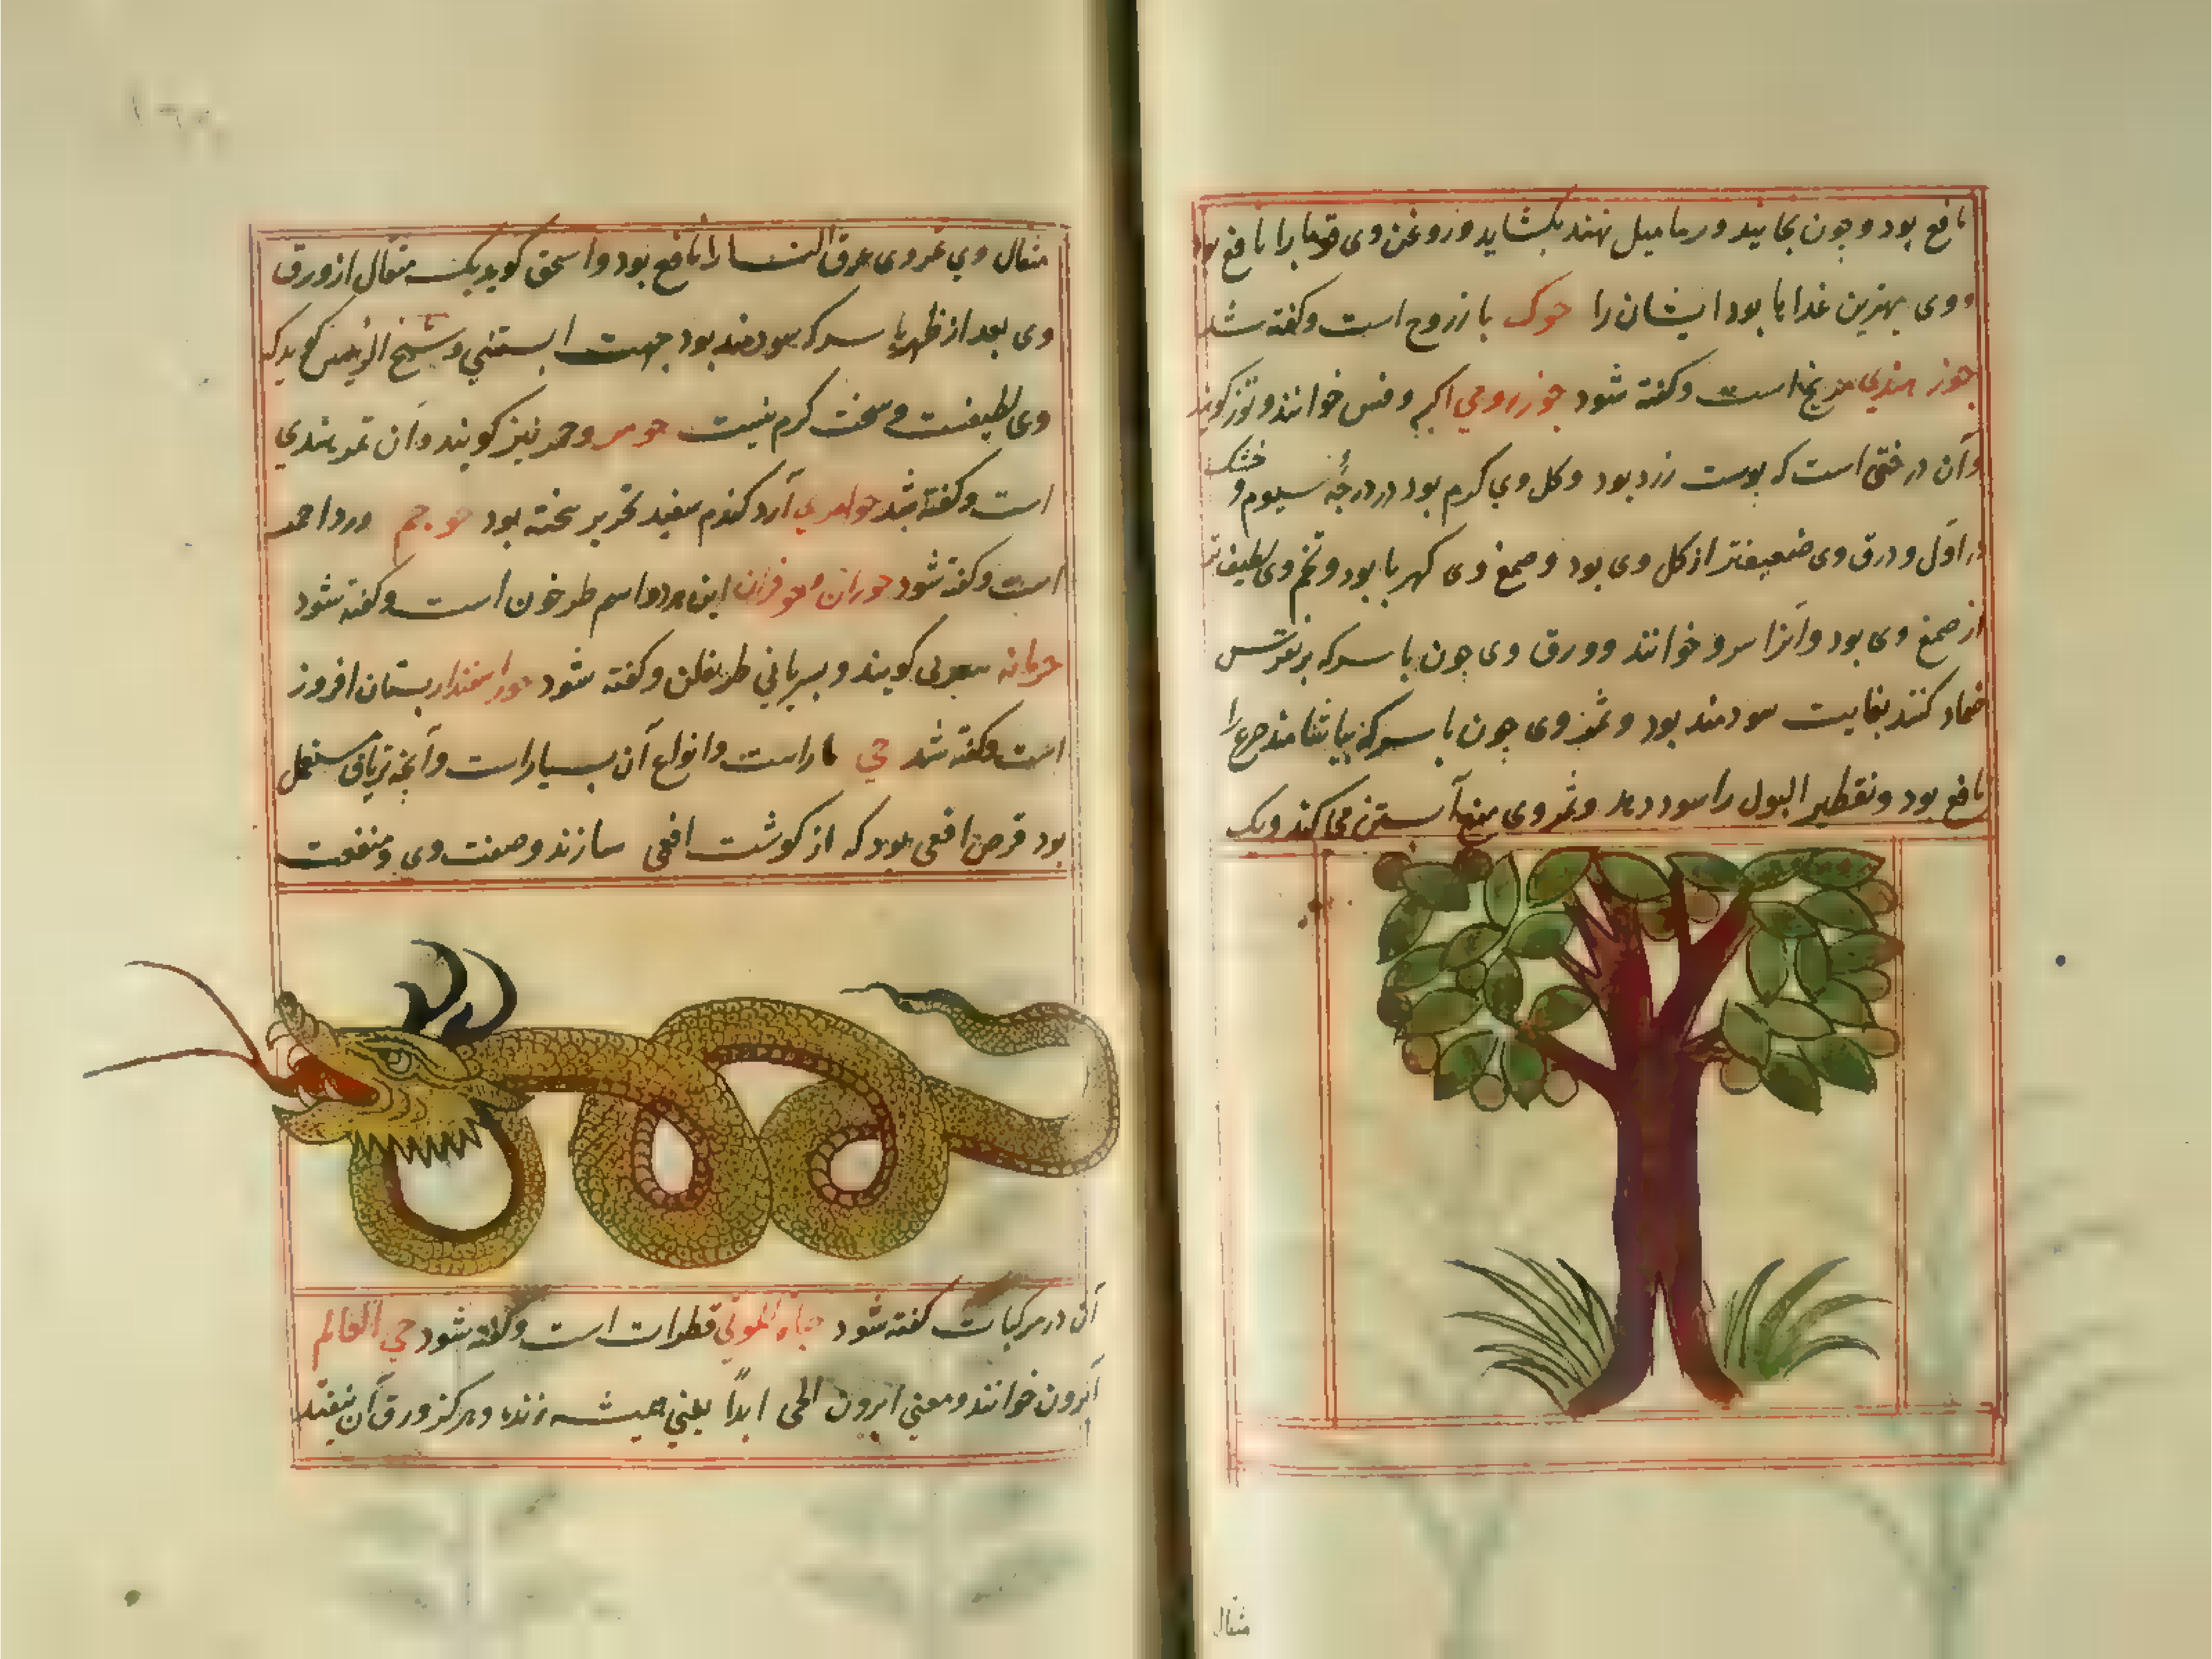 نافع بود و چون بخایند و بر دمامیل نهند بکشاید و روغن وی قوبا را نافع بود
و وی بهترین غذاها بود ایشان را حوک بازروج است و کفته شد
جوز هندی است و کفته شود حوز رومی اکبر و فنس خوانند و توز کویند
و آن درختی است که پوست زرد بود و کل وی کرم بود در درجهٔ سیوم و خشک
در اول و ورق وی ضعیفتر از کل وی بود و صمغ وی کهربا بود و تخم وی لطیف تر
از صمغ وی بود و آنرا سرو خوانند و ورق وی چون با سرکه بر نقرس
ضماد کنند بغایت سودمند بود و ثمر وی چون با سرکه بیاشامند صرع را
نافع بود و تقطیر البول را سود دهد و ثمر وی منع آبستن می کند و یک
مثقال
مثقال وی عرق النسا را نافع بود و اسحق کوید یک مثقال از ورق
وی بعد از طهر با سرکه سودمند بود جهت ابستنی و شیخ الرئیس کوید که
وی لطیفست و سخت کرم نیست حومر و حمر نیز کویند و آن تمر هندی
است و کفته شد حوامری آرد کندم سفید بود حوجم ورد احمر
است و کفته شود حوران و حوفران این هردو اسم طرخون است و کفته شود
حومانه بعربی کویند و بسریانی طریفلن و کفته شود حوراسفندار بستان افروز
است و کفته شد حی مار است و انواع آن بسیار است و آنچه تریاق مستعمل
بود قرص افعی بود که از کوشت افعی سازند و صفت وی و منفعت
آن در مرکبات کفته شود حیاة الموتی قطران است و کفته شود حی العالم
آبرون خوانند و معنی ابرون الحی ابداً یعنی همیشه زنده و هرکز ورق آن نیفتد